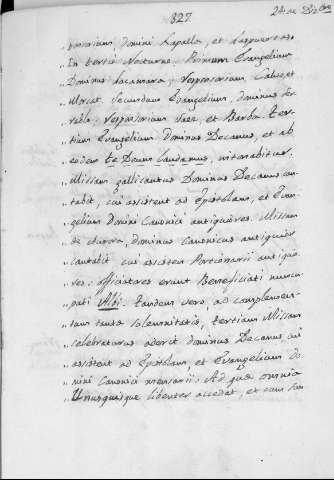 827.
24 de Dizbre
"sponsorium, domini Capella, et Lapuerta.
"In tertio Nocturno, Primum Evangelium
"Dominus Lacamara, Responsorium, Calvo, et
"Morcat. Secundum Evangelium, dominus
"Responsorium Saez, et Barba. Ter-
"tium Evangelium dominus Decanus, et ab
"eodem te Deum laudamus, intonabitur.
"Missam gallicantus Dominus Decanus can-
"tabit, cui assistent ad Epistolam, et Evan-
"gelium Domini Canonici antiquiores. Missam
"de aurora, dominus Canonicus antiquior
"cantabit cui assistent Portionarii antiquio-
"res: officiatores erunt Beneficiati nuncu-
"pati Albi: tandem vero, ad complemen-
"tum tantæ solemnitatis, tertiam Missam
"celebraturus aderit dominus Decanus, cui
"assistent ad Epistolam, et Evangelium do-
"mini Canonici mensarii: Ad quæ omnia
"Unusquisque libenter accedat, et cum